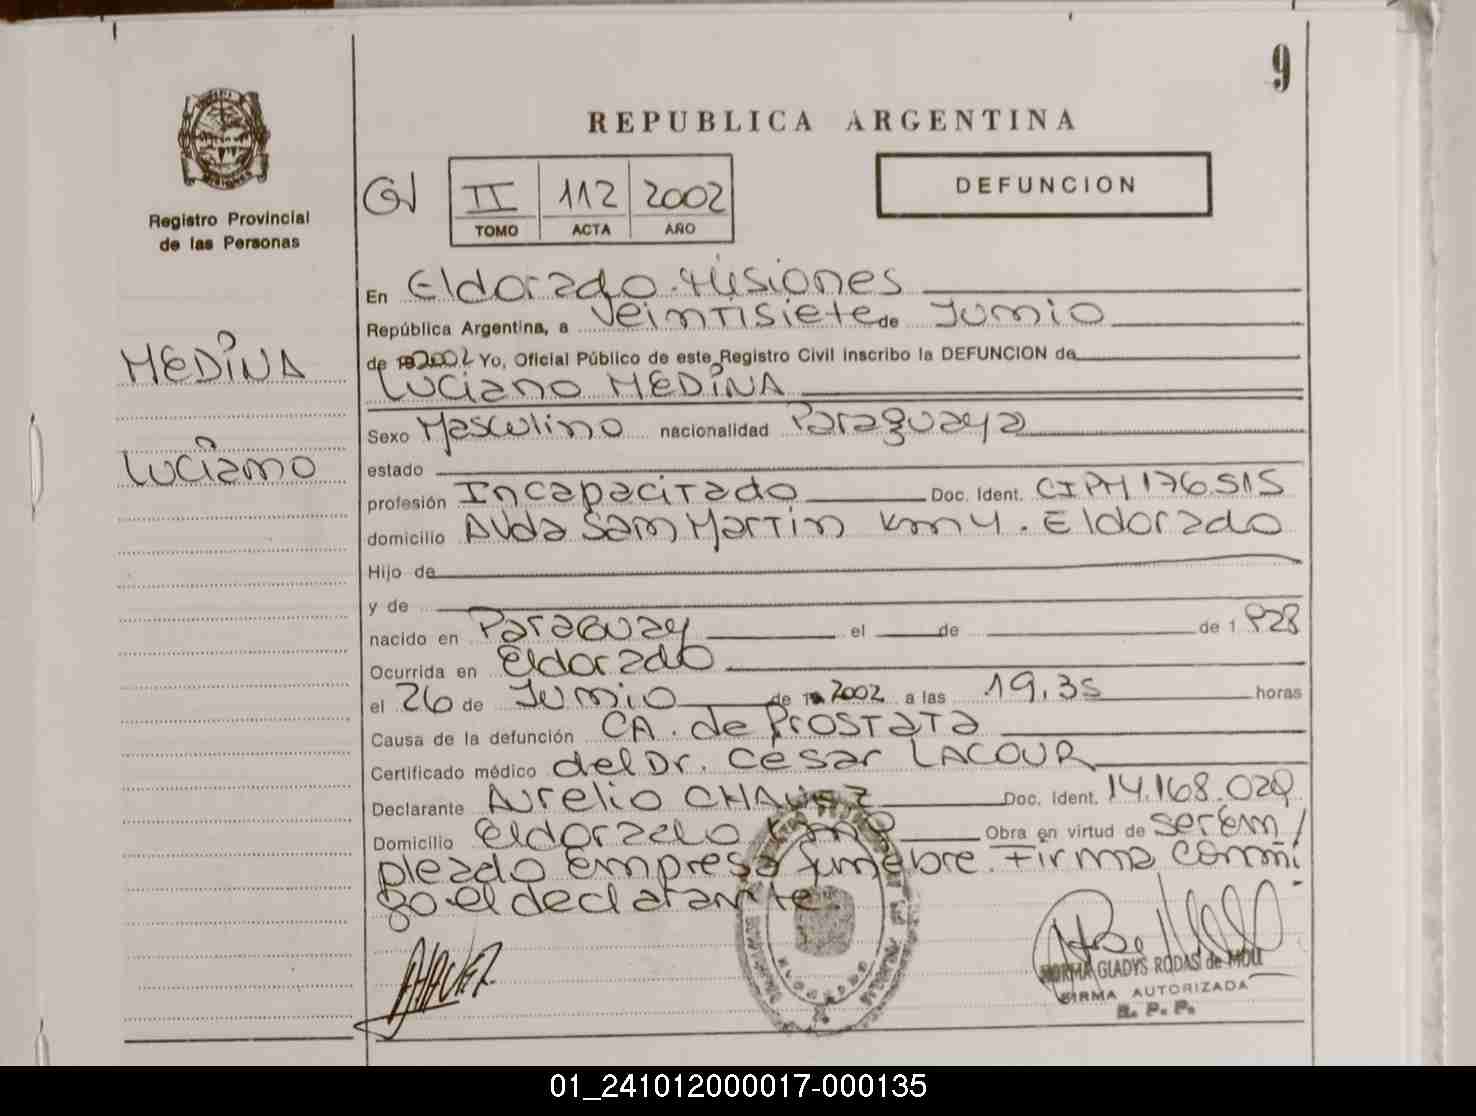 9
REPUBLICA ARGENTINA
DEFUNCION
II 112 2002
TOMO ACTA AÑO
Registro Provincial
de las Personas
MEDINA
Luciano
En Eldorado. Misiones
República Argentina, a Veintisiete de Junio
de 2002 Yo, Oficial Público de este Registro Civil inscribo la DEFUNCION de
Luciano MEDINA
Sexo Masculino nacionalidad Paraguaya
estado
profesión Incapacitado Doc. Ident. CIPM 176515
domicilio Avda San Martin Km 4. Eldorado
Hijo de
y de
nacido en Paraguay el de de 1 928
Ocurrida en Eldorado
el 26 de Junio de 2002 a las 19,35 horas
Causa de la defunción CA. de PROSTATA
Certificado médico del Dr. César LACOUR
Declarante Aurelio CHAVEZ Doc. Ident. 14.168.029
Domicilio Eldorado Km 9 Obra en virtud de ser em/
pleado empresa fúnebre. Firma conmi
go el declarante.
CHAVEZ
NORMA GLADYS RODAS de MOLL
FIRMA AUTORIZADA
R. P. P.
01_241012000017-000135